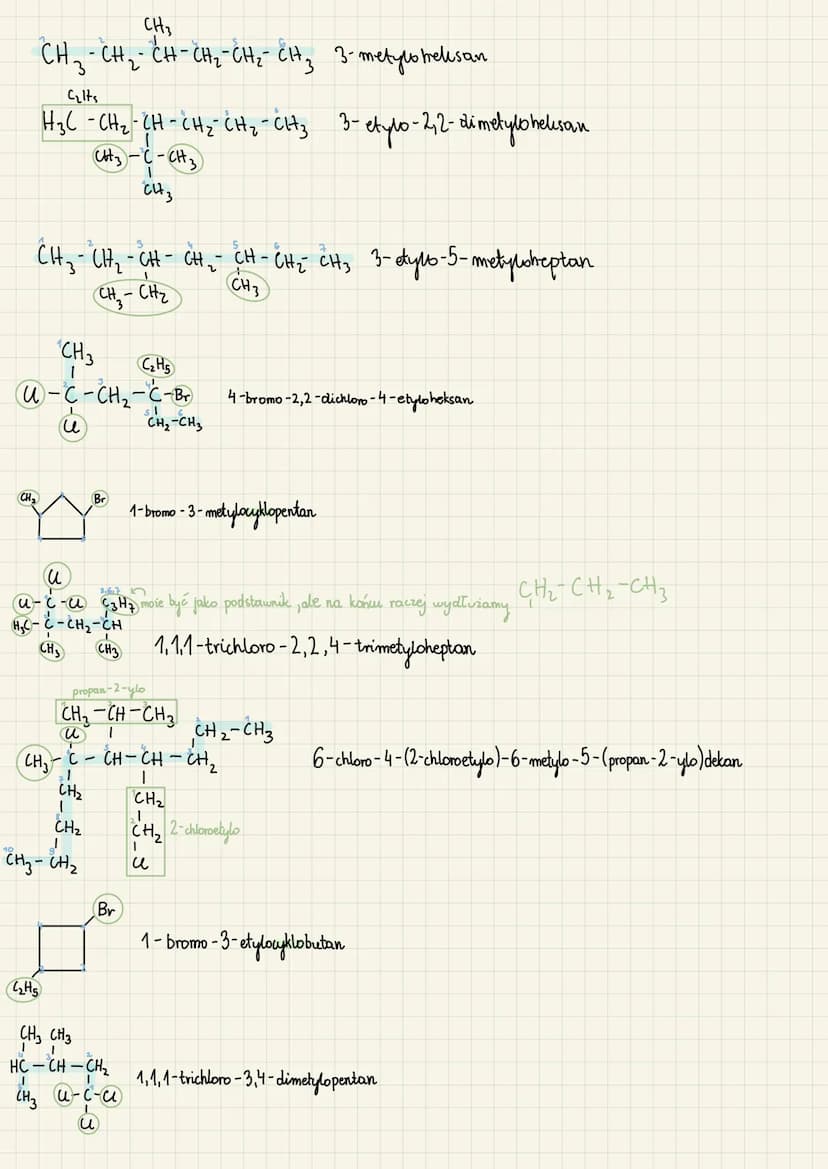 CH3
1 2 3 4 5 6
CH3-CH2-CH-CH2-CH2-CH3 3-metyloheksan
C2H5
H3C-CH2-CH-CH2-CH2-CH3 3-etylo-2,2-dimetyloheksan
CH3-C-CH3
CH3
1 2 3 4 5 6 7
CH3-CH2-CH-CH2-CH-CH2-CH3 3-etylo-5-metyloheptan
CH3-CH2 CH3
1CH3 C2H5
Cl-C-CH2-C-Br 4-bromo-2,2-dichloro-4-etyloheksan
Cl CH2-CH3
CH3 Br
1-bromo-3-metylocyklopentan
Cl
CH2-CH2-CH3
Cl-C-Cl C3H7 może być jako podstawnik, ale na końcu raczej wydłużamy
H3C-C-CH2-CH
CH3 CH3 1,1,1-trichloro-2,2,4-trimetyloheptan
propan-2-ylo
CH3-CH-CH3
Cl CH2-CH3
CH3-C-CH-CH-CH2 6-chloro-4-(2-chloroetylo)-6-metylo-5-(propan-2-ylo)dekan
CH2 CH2
CH2 CH2 2-chloroetylo
CH3-CH2 Cl
Br
1-bromo-3-etylocyklobutan
C2H5
CH3 CH3
HC-CH-CH2
1,1,1-trichloro-3,4-dimetylopentan
CH3 Cl-C-Cl
Cl